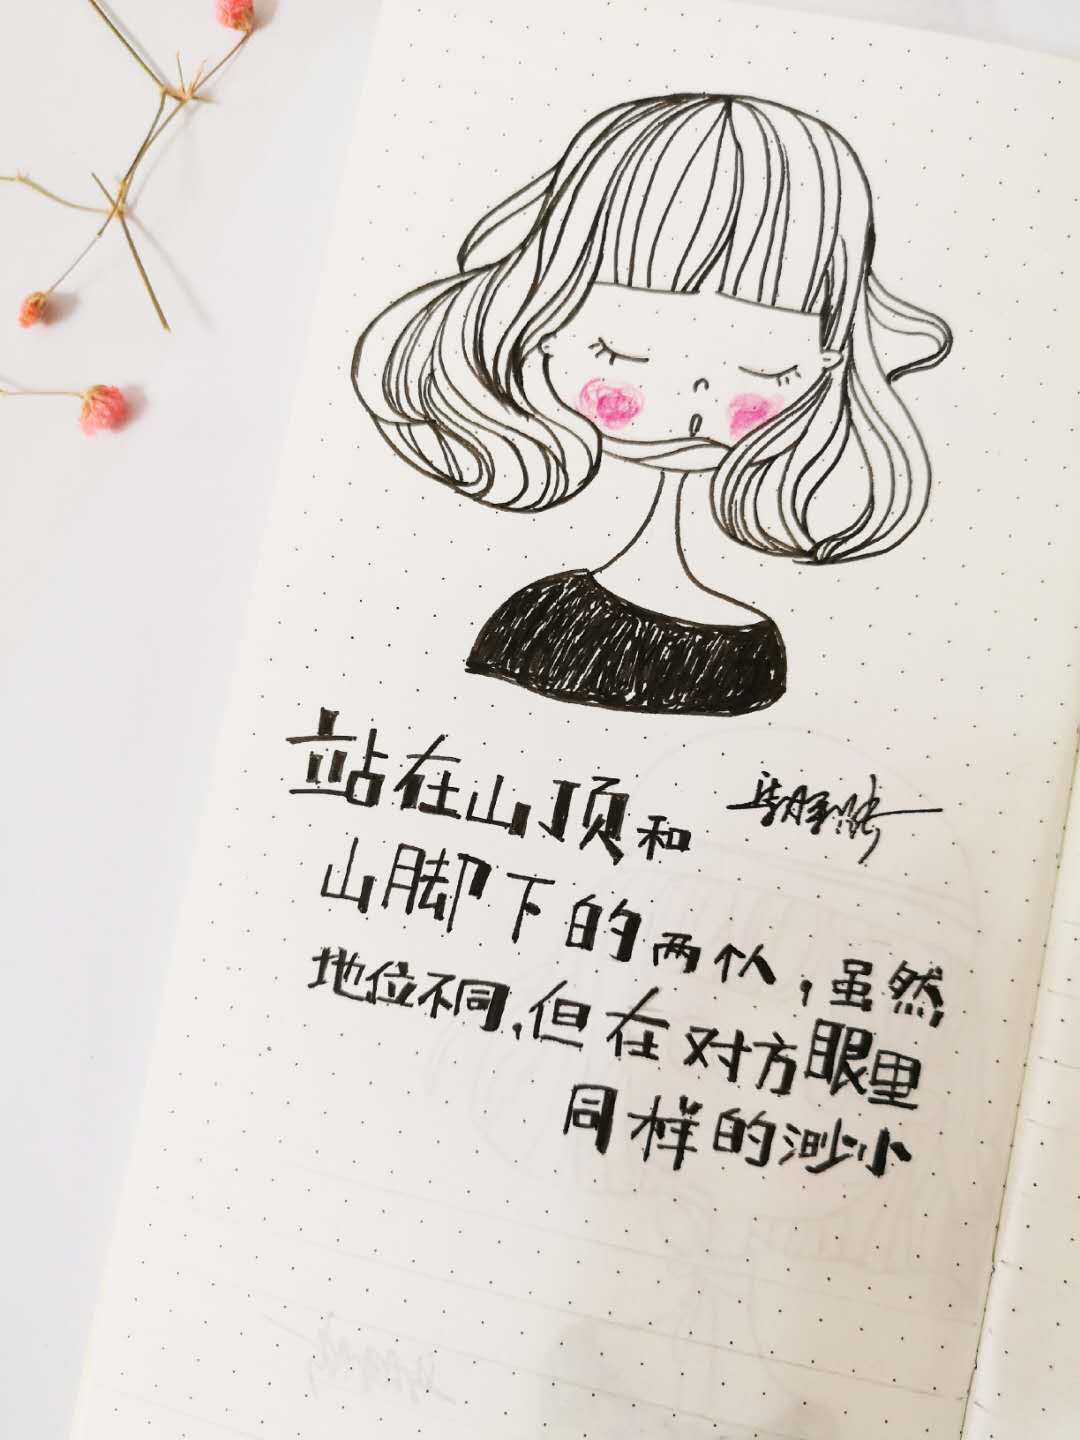 站在山顶和
山脚下的两个人,虽然
地位不同,但在对方眼里
同样的渺小